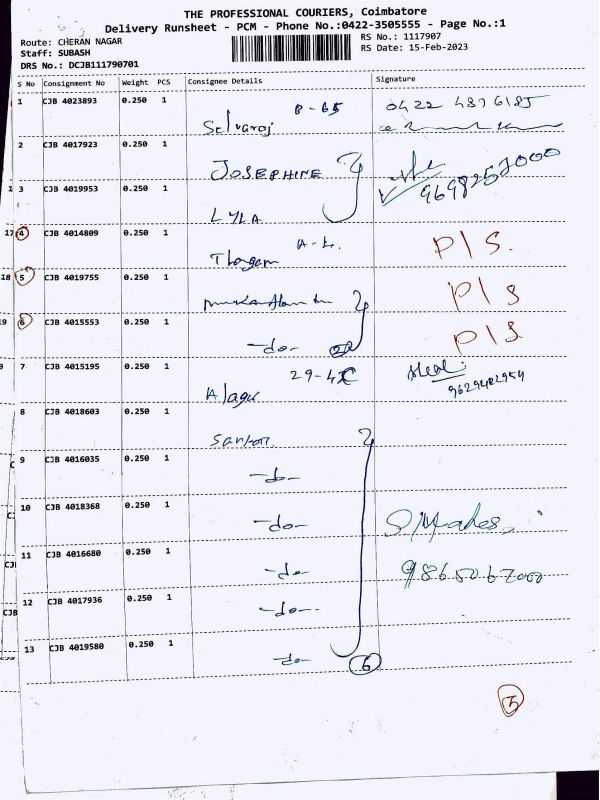 THE PROFESSIONAL COURIERS, Coimbatore
Delivery Runsheet - PCM - Phone No.:0422-3505555 - Page No.:1
Route: CHERAN NAGAR
Staff: SUBASH
DRS No.: DCJB111790701
RS No.: 1117907
RS Date: 15-Feb-2023
S No Consignment No Weight PCS Consignee Details Signature
1 CJB 4023893 0.250 1 Selvaraj
2 CJB 4017923 0.250 1 JOSEPHINE
3 CJB 4019953 0.250 1 LYLA
4 CJB 4014809 0.250 1 P/S.
5 CJB 4019755 0.250 1 P/S
6 CJB 4015553 0.250 1 -do- P/S.
7 CJB 4015195 0.250 1 Alagu 29-4 9629402954
8 CJB 4018603 0.250 1
9 CJB 4016035 0.250 1 -do-
10 CJB 4018368 0.250 1 -do-
11 CJB 4016680 0.250 1 -do-
12 CJB 4017936 0.250 1 -do-
13 CJB 4019580 0.250 1 -do- 6
5